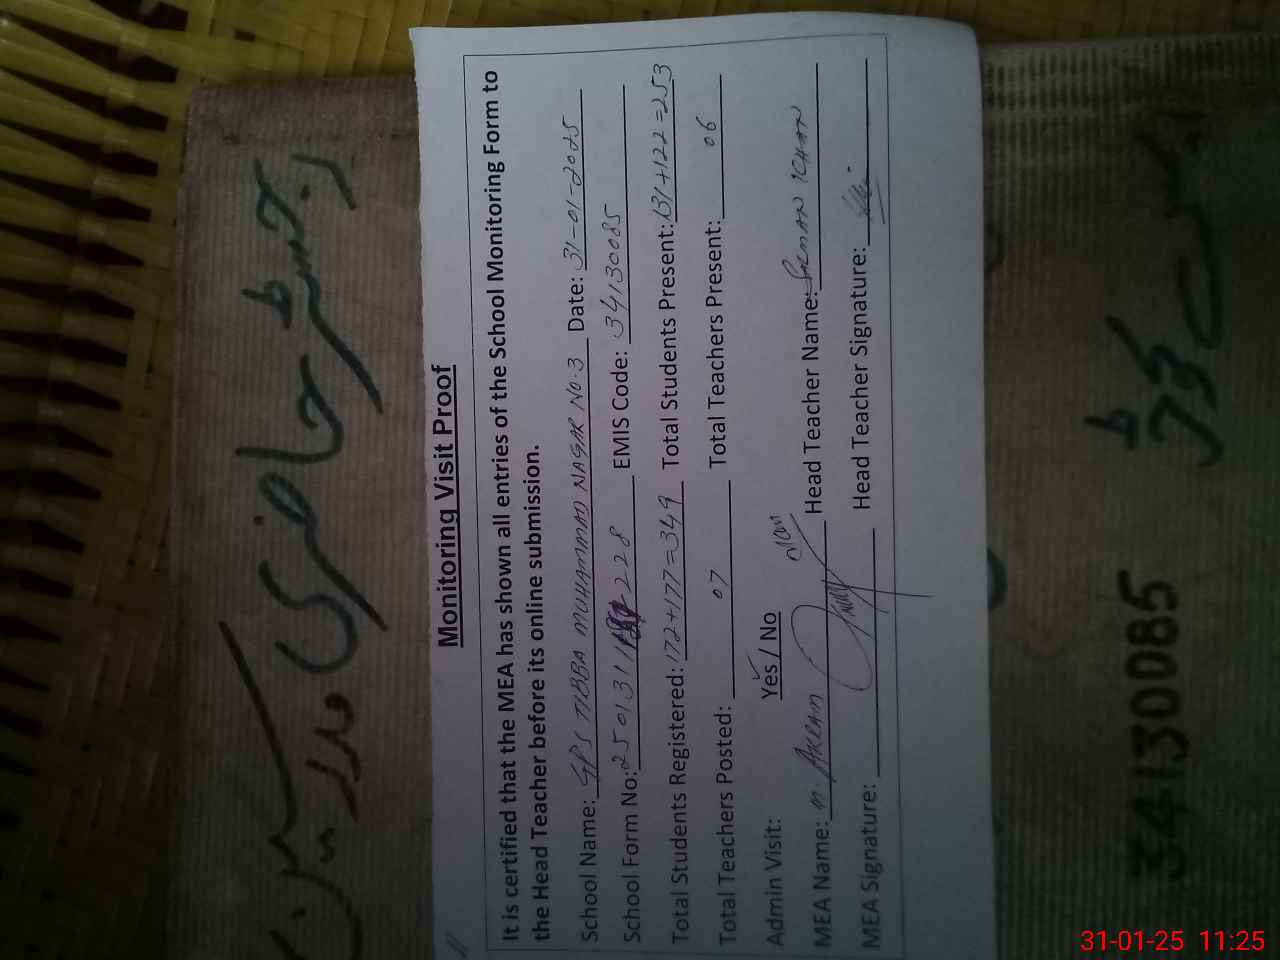 Monitoring Visit Proof
It is certified that the MEA has shown all entries of the School Monitoring Form to
the Head Teacher before its online submission.
School Name: GPS TIBBA MOHAMMAD NAGAR NO.3 Date: 31-01-2025
School Form No: 2501311 228 EMIS Code: 34130085
Total Students Registered: 172+177=349 Total Students Present: 131+122=253
Total Teachers Posted: 07 Total Teachers Present: 06
Admin Visit: Yes / No
MEA Name: M. AKRAM Head Teacher Name: SALMAN KHAN
MEA Signature: Head Teacher Signature:
رجسٹر حاضری مدرسین
34130085
31-01-25 11:25